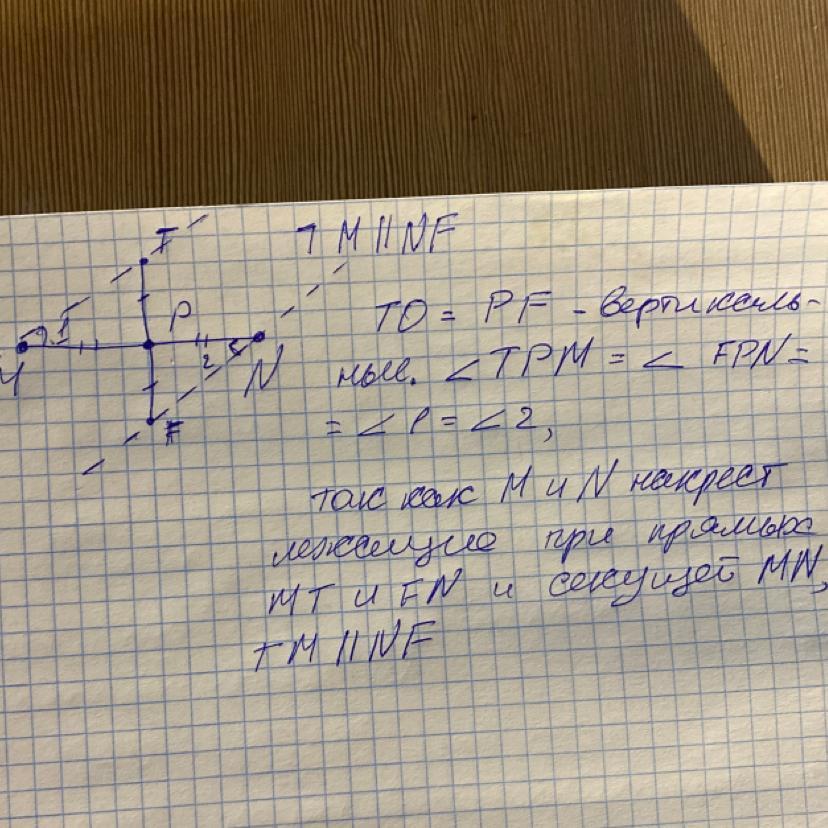 T
TM||NF
1
P
M
2
N
F
TO = PF - вертикаль-
ные. ∠TPM = ∠ FPN =
= ∠1 = ∠2,
так как M и N накрест
лежащие при прямых
MT и FN и секущей MN,
TM || NF